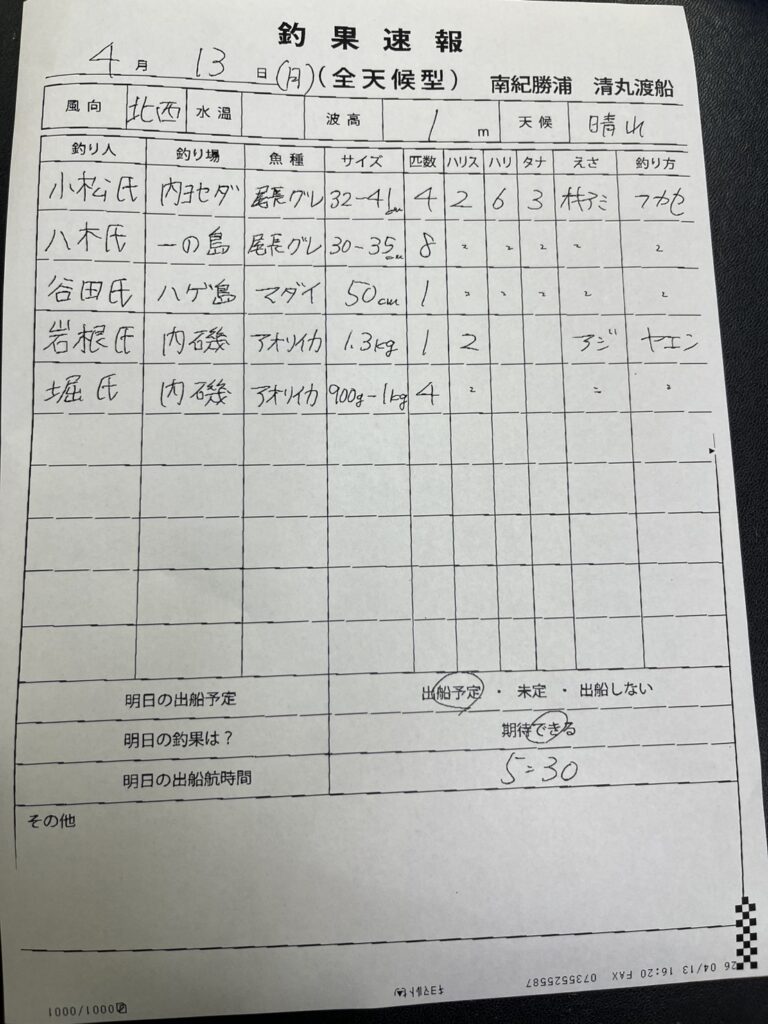 釣果速報
4月13日(月)(全天候型) 南紀勝浦 清丸渡船
風向 北西 水温 波高 1 m 天候 晴れ
釣り人 釣り場 魚種 サイズ 匹数 ハリス ハリ タナ えさ 釣り方
小松氏 内ヨセダ 尾長グレ 32-41cm 4 2 6 3 オキアミ フカセ
八木氏 一の島 尾長グレ 30-35cm 8 〃 〃 〃 〃 〃
谷田氏 ハゲ島 マダイ 50cm 1 〃 〃 〃 〃 〃
岩根氏 内磯 アオリイカ 1.3kg 1 2 アジ ヤエン
堀氏 内磯 アオリイカ 900g-1kg 4 〃 〃 〃
明日の出船予定 出船予定 ・ 未定 ・ 出船しない
明日の釣果は? 期待できる
明日の出船航時間 5:30
その他
26 04/13 16:20 FAX 0735525587
キヨマルトセン
0001/0001